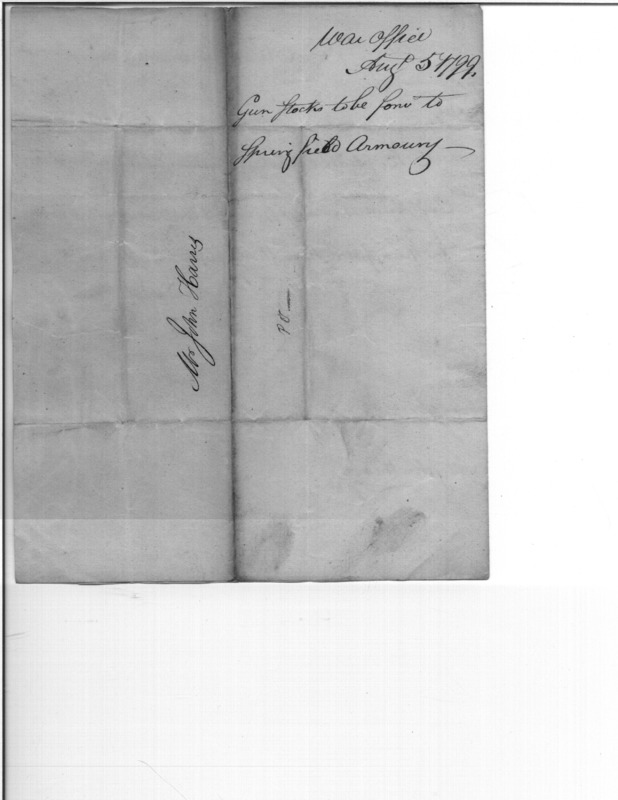 War Office
Augt 5 1799.
Gun Stocks to be sent to
Springfield Armoury —
Mr John Harris